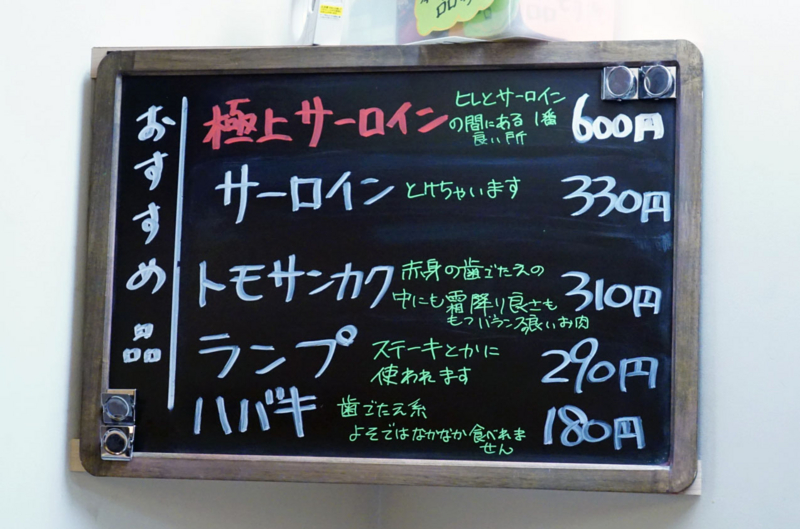 おすすめ品
極上サーロイン
ヒレとサーロイン
の間にある1番
良い所
600円
サーロイン
とけちゃいます
330円
トモサンカク
赤身の歯ごたえの
中にも霜降り良さも
もつバランス良いお肉
310円
ランプ
ステーキとかに
使われます
290円
ハバキ
歯ごたえ系
よそではなかなか食べれま
せん
180円